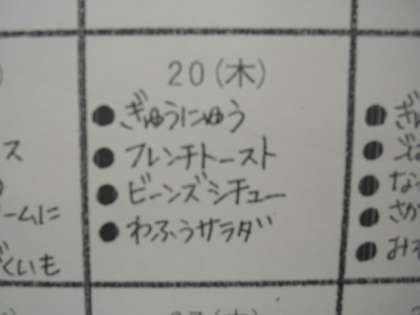 20(木)
●ぎゅうにゅう
●フレンチトースト
●ビーンズシチュー
●わふうサラダ
ス
ームに
くいも
● ぎ
● な
● さか
● み